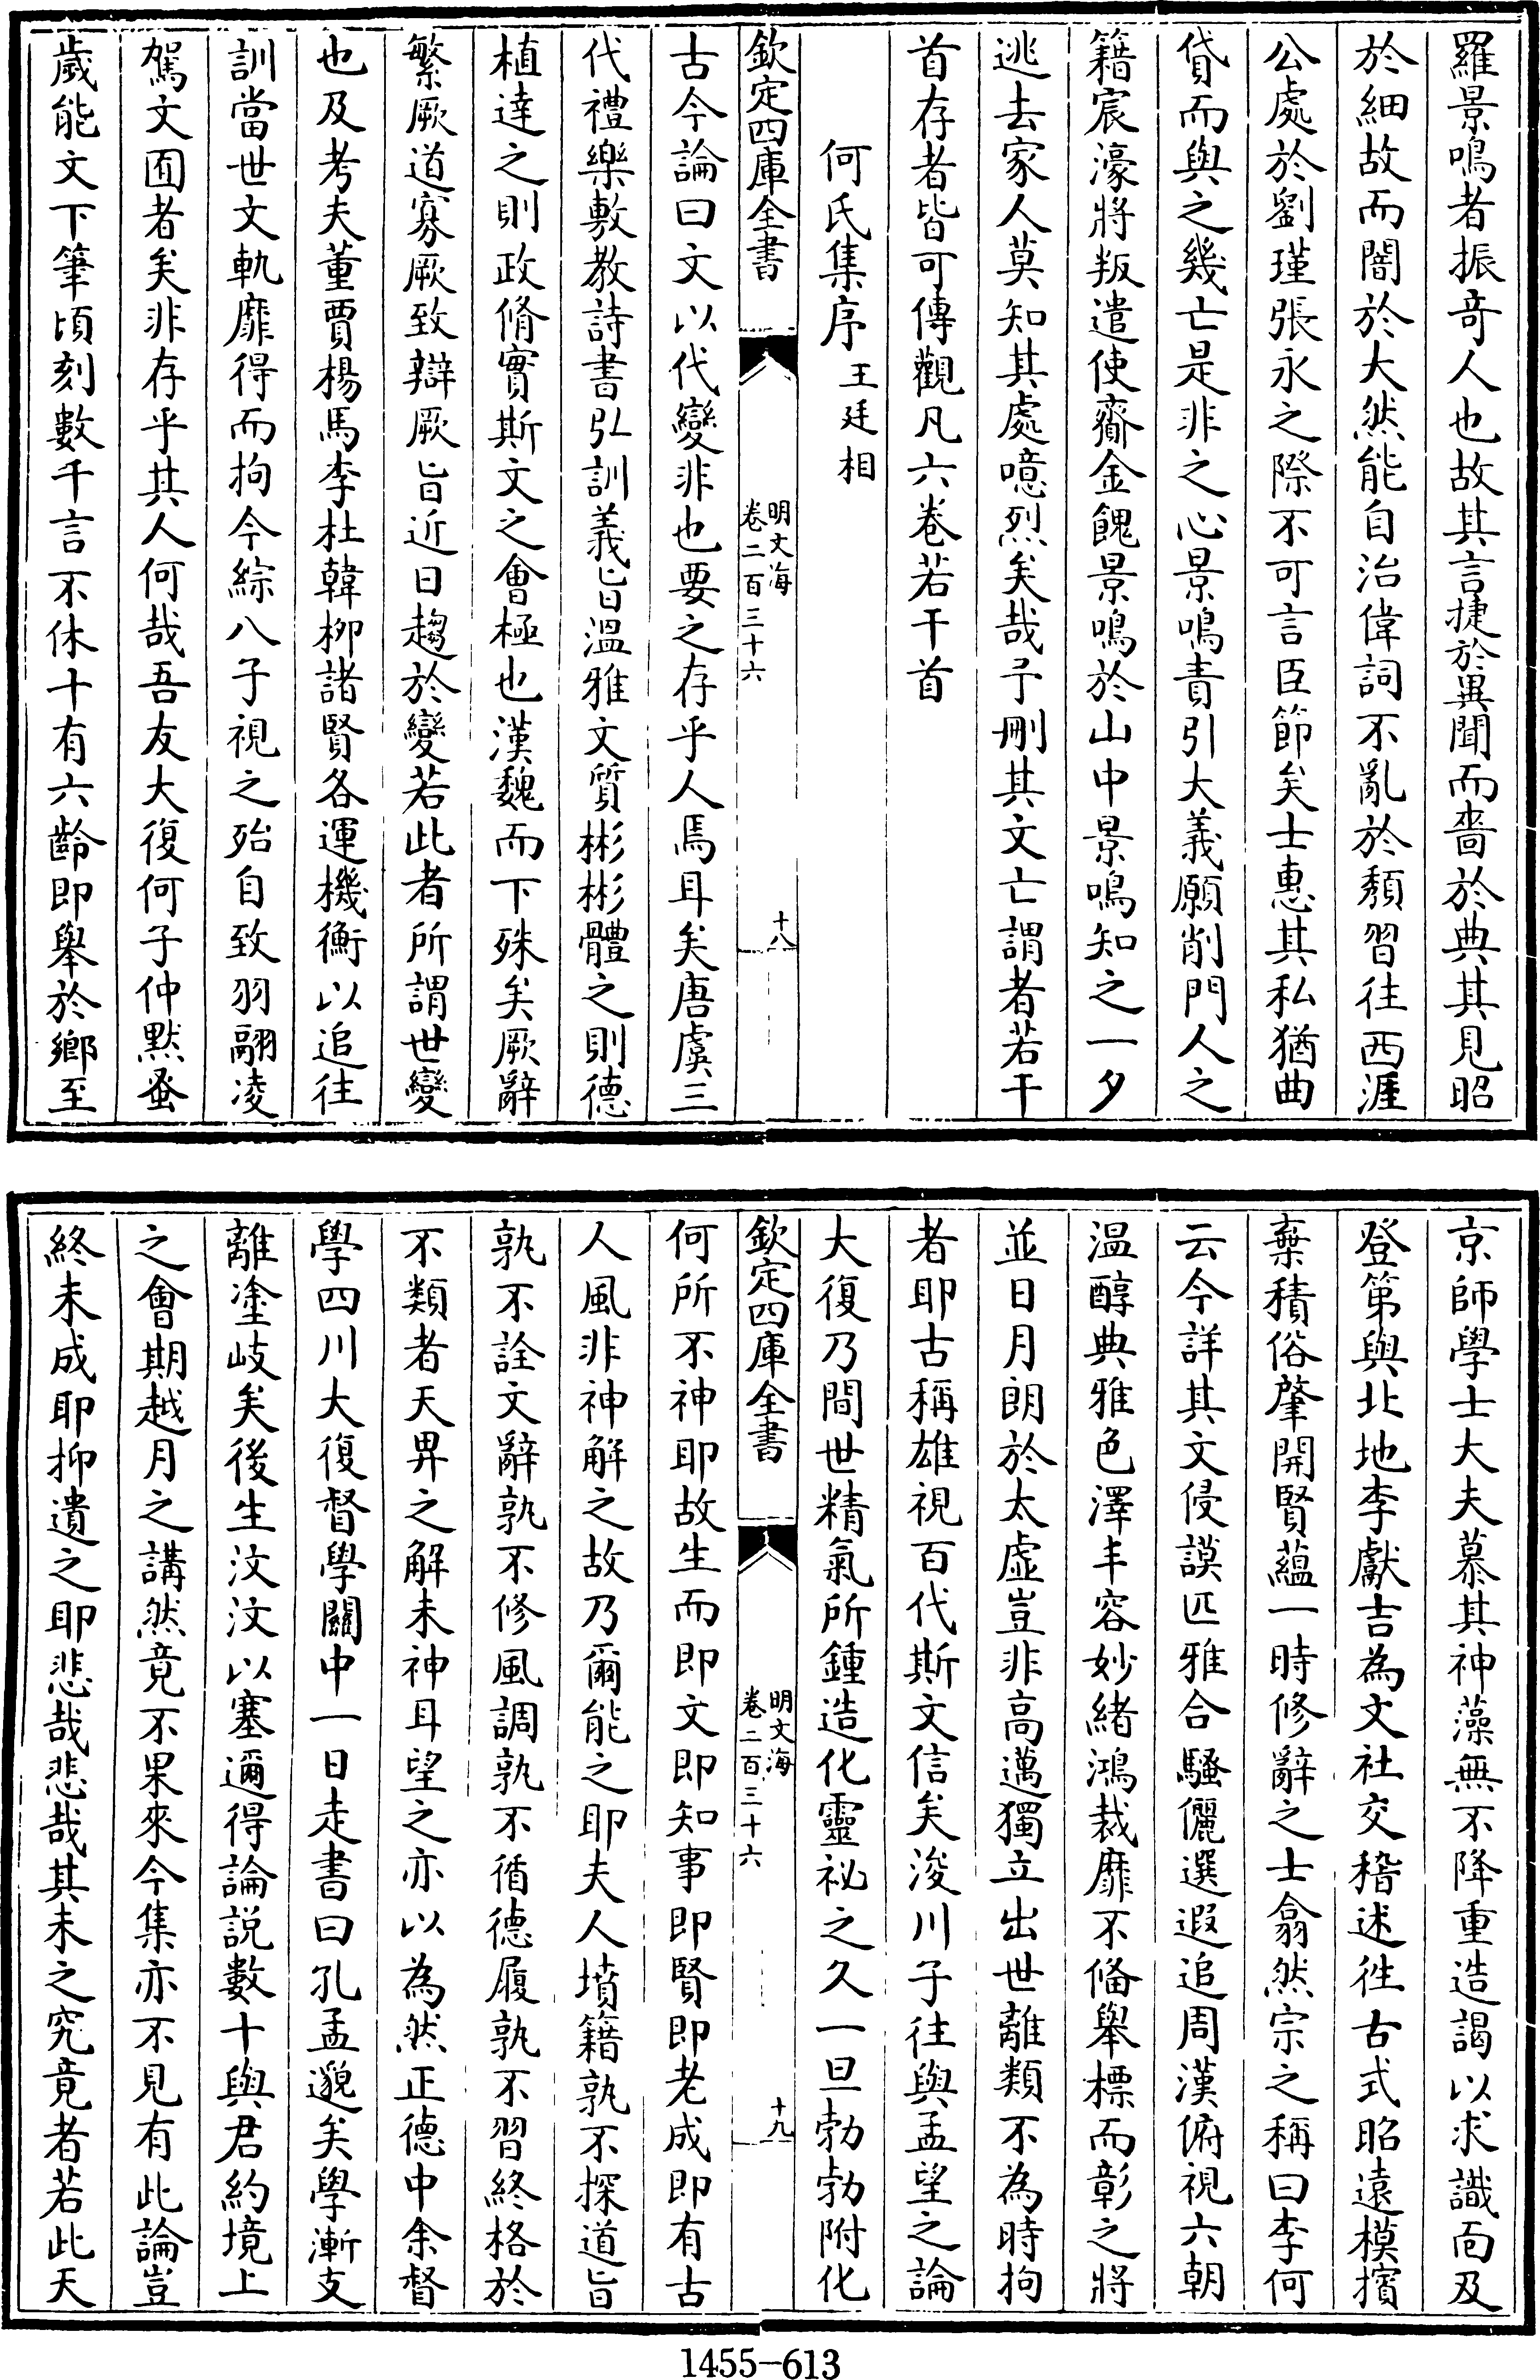 羅景鳴者振竒人也故其言捷於異聞而嗇於典其見昭
於細故而闇於大然能自治偉詞不亂於頽習往西涯
公處於劉瑾張永之際不可言臣節矣士惠其私猶曲
貸而與之幾亡是非之心景鳴責引大義願削門人之
籍宸濠將叛遣使齎金餽景鳴於山中景鳴知之一夕
逃去家人莫知其處噫烈矣哉予刪其文亡謂者若干
首存者皆可傳觀凡六卷若干首
何氏集序 王廷相
欽定四庫全書
明文海
卷二百三十六
十八
古今論曰文以代變非也要之存乎人焉耳矣唐虞三
代禮樂敷教詩書弘訓義旨溫雅文質彬彬體之則德
植達之則政脩實斯文之會極也漢魏而下殊矣厥辭
繁厥道寡厥致辯厥旨近日趨於變若此者所謂世變
也及考夫董賈楊馬李杜韓柳諸賢各運機衡以追往
訓當世文軌靡得而拘今綜八子視之殆自致羽翮凌
駕文囿者矣非存乎其人何哉吾友大復何子仲黙蚤
歲能文下筆頃刻數千言不休十有六齡即舉於鄉至
京師學士大夫慕其神藻無不降重造謁以求識面及
登第與北地李獻吉為文社交稽述徃古式昭遠模擯
棄積俗肇開賢蘊一時修辭之士翕然宗之稱曰李何
云今詳其文侵謨匹雅合騷儷選遐追周漢俯視六朝
温醇典雅色澤丰容妙緒鴻裁靡不備舉標而彰之將
並日月朗於太虛豈非高邁獨立出世離類不為時拘
者耶古稱雄視百代斯文信矣浚川子往與孟望之論
大復乃間世精氣所鍾造化靈祕之久一旦勃勃附化
欽定四庫全書
明文海
卷二百三十六
十九
何所不神耶故生而即文即知事即賢即老成即有古
人風非神解之故乃爾能之耶夫人墳籍孰不探道旨
孰不詮文辭孰不修風調孰不循德履孰不習終格於
不類者天畀之解未神耳望之亦以為然正德中余督
學四川大復督學關中一日走書曰孔孟邈矣學漸支
離塗岐矣後生汶汶以塞邇得論説數十與君約境上
之會期越月之講然竟不果來今集亦不見有此論豈
終未成耶抑遺之耶悲哉悲哉其未之究竟者若此天
1455-613